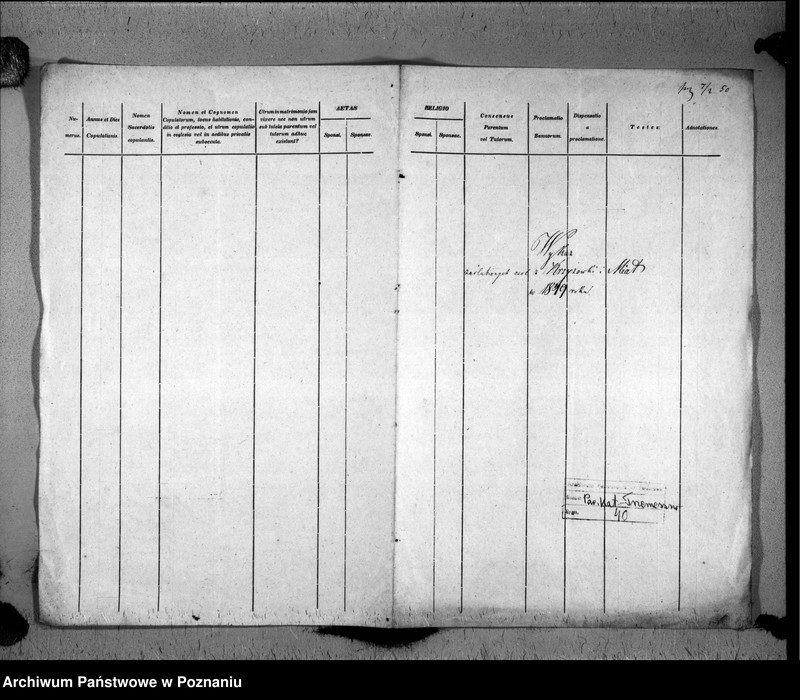 7/2 50
Nu-
merus.
Annus et Dies
Copulationis.
Nomen
Sacerdotis
copulantis.
Nomen et Cognomen
Copulatorum, locus habitationis, con-
ditio et professio, et utrum copulatio
in ecclesia vel in aedibus privatis
subsecuta.
Utrum in matrimonio jam
vixere nec non utrum
sub tutela parentum vel
tutorum adhuc
existant?
AETAS
Sponsi.
Sponsae.
RELIGIO
Sponsi.
Sponsae.
Consensus
Parentum
vel Tutorum.
Proclamatio
Bannorum.
Dispensatio
a
proclamatione.
Testes.
Adnotationes.
Wykaz
zaślubionych osób z i Miat
w 1849 roku.
Par. kat. Trzemeszno
40
Archiwum Państwowe w Poznaniu